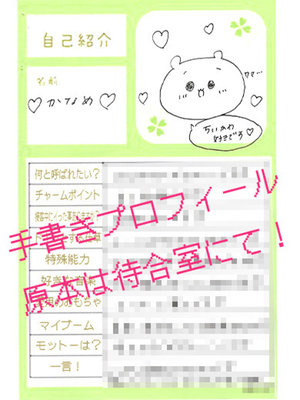 自己紹介
名前
♡かなめ♡
ちいかわ
好きです♡
何と呼ばれたい？
チャームポイント
特殊能力
マイブーム
モットーは？
一言！
手書きプロフィール
原本は待合室にて！